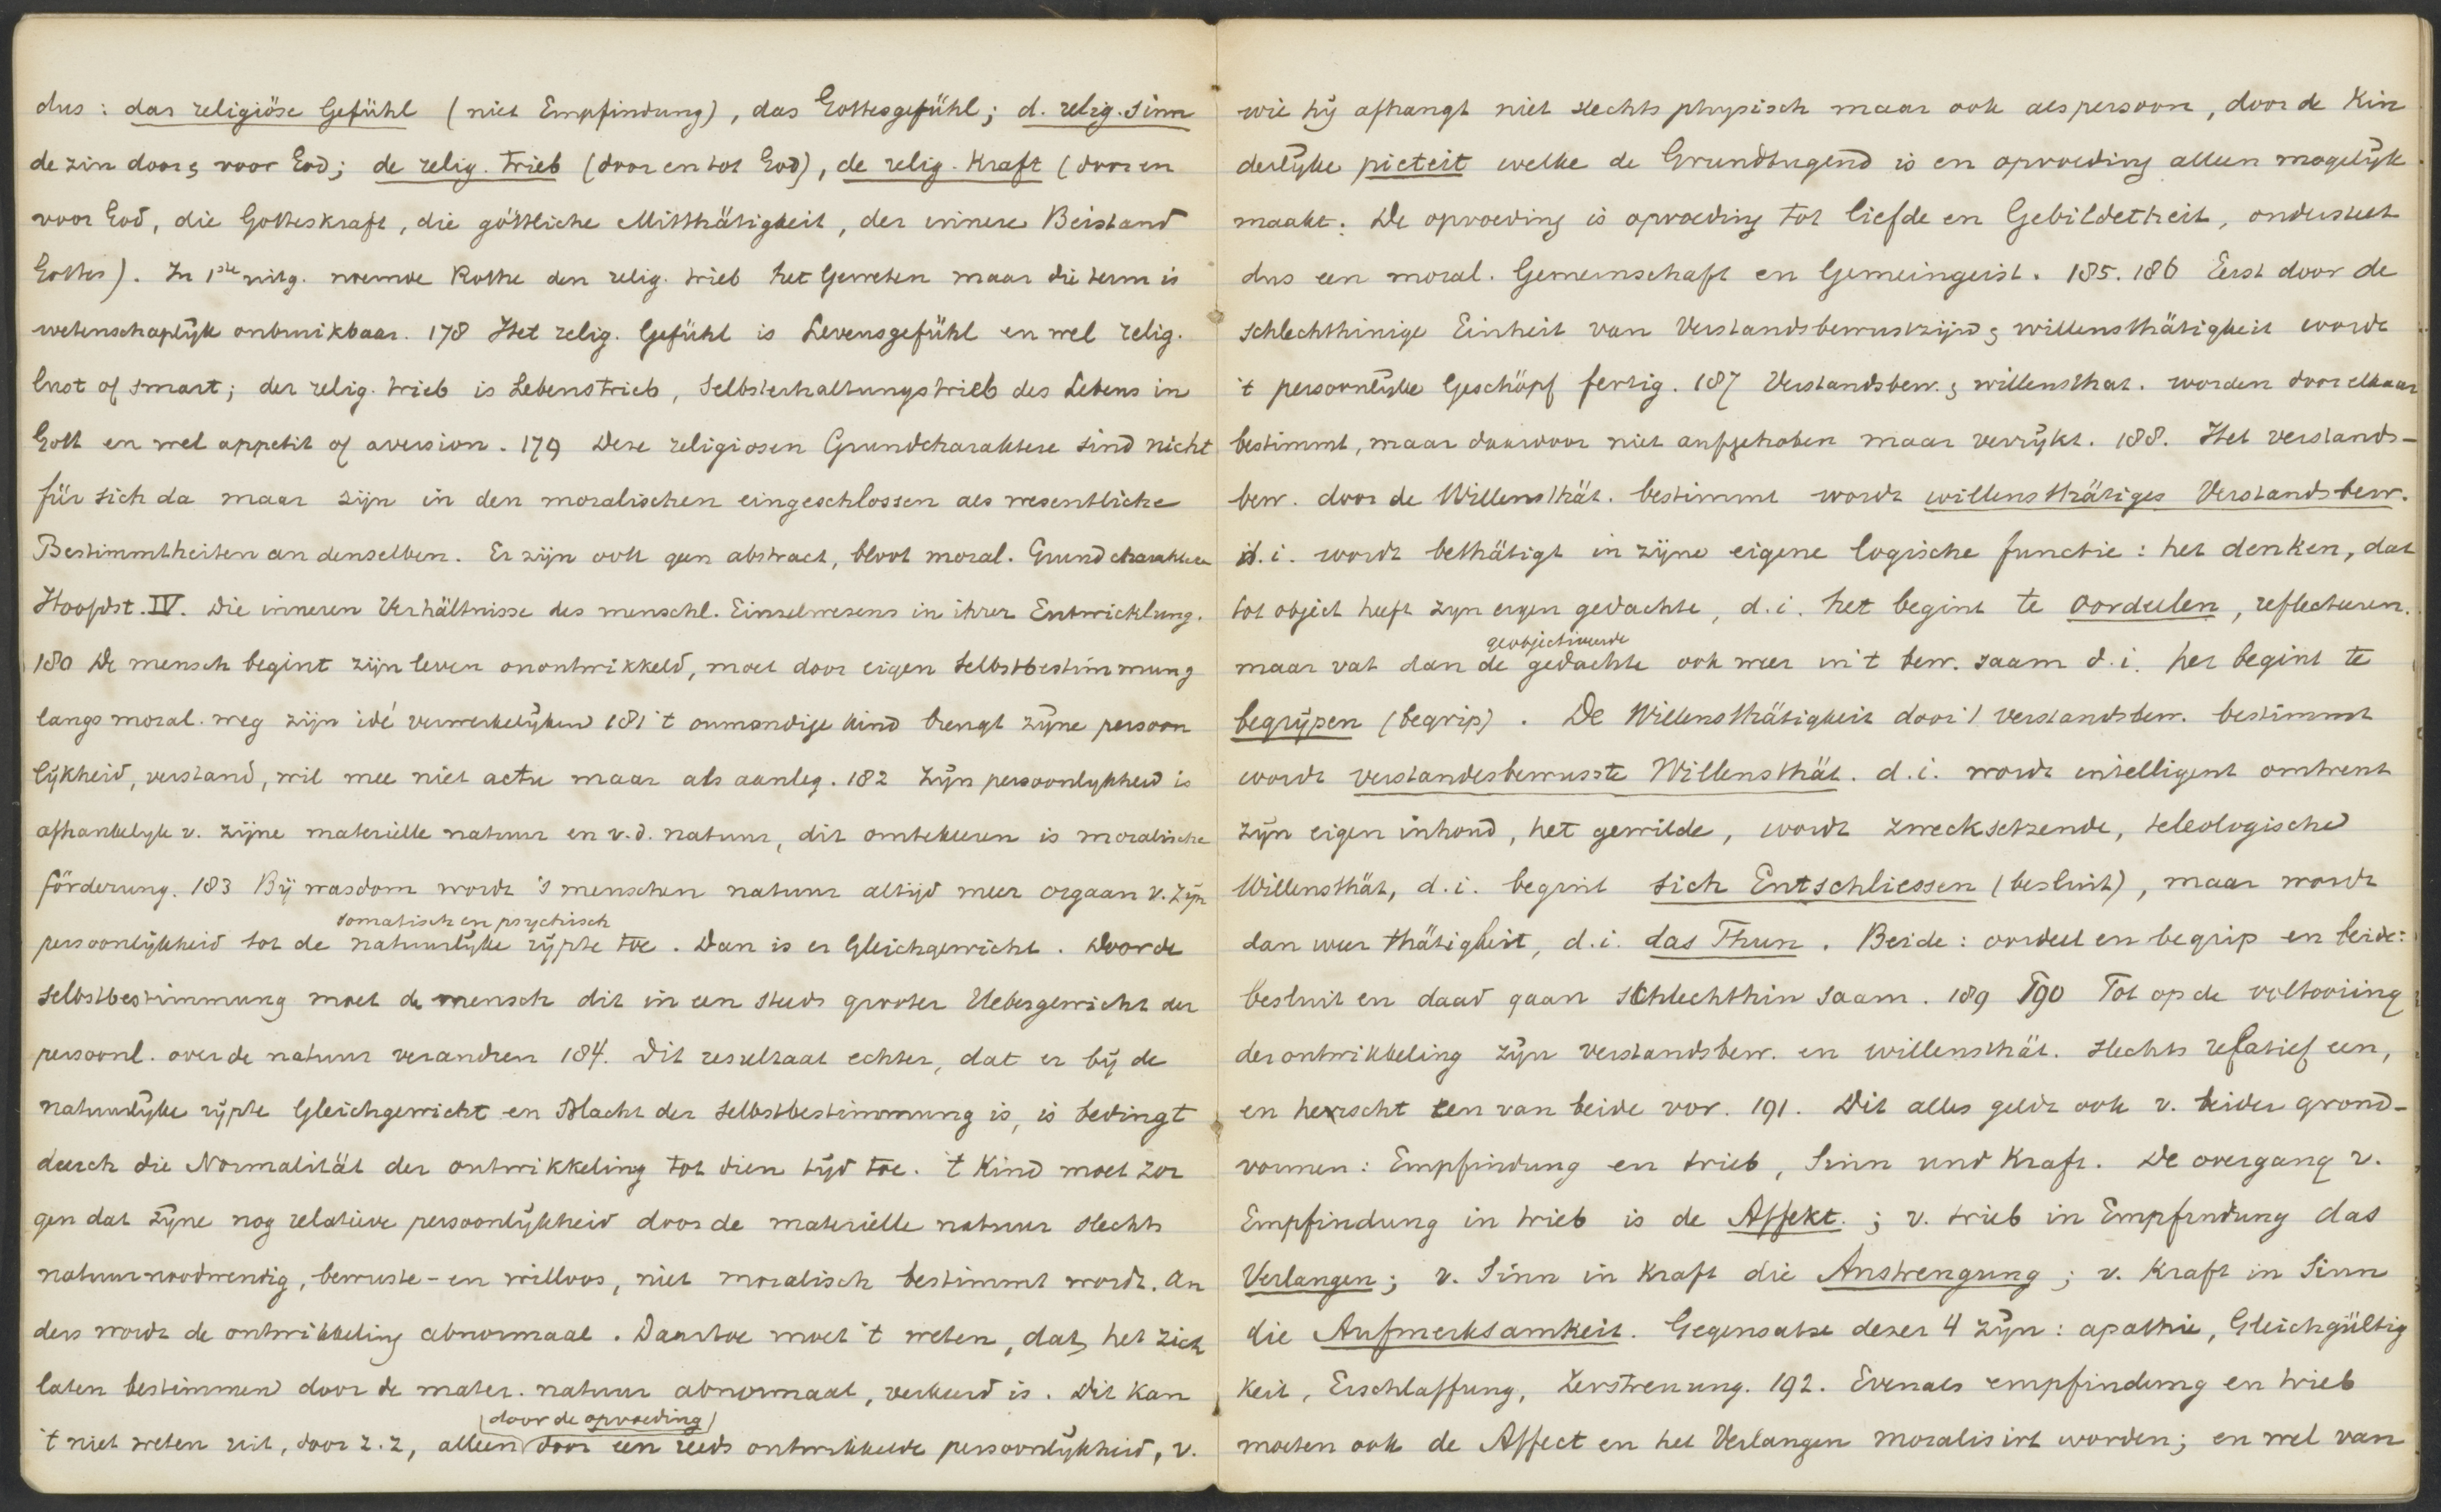 dus: das religiöse Gefühl (niet Empfindung), das Gottesgefühl; d. relig. Sinn
de zin door & voor God; de relig. Trieb (door en tot God), de relig. Kraft (door en
voor God, die Gotteskraft, die göttliche Mitthätigkeit, der innere Beistand
Gottes). In 1ste uitg. noemde Rothe den relig. trieb het Geweten maar die term is
wetenschaplijk onbruikbaar. 178 Het relig. Gefühl is Levensgefühl en wel relig.
lust of smart; der relig. trieb is Lebenstrieb, Selbsterhaltungstrieb des Lebens in
Gott en wel appetit of aversion. 179 Deze religiosen Grundcharaktere sind nicht
für sich da maar zijn in den moralischen eingeschlossen als wesentliche
Bestimmtheiten an denselben. Er zijn ook geen abstract, bloot moral. Grundcharaktere
Hoofdst. IV. Die inneren Verhältnisse des menschl. Einzelwesens in ihrer Entwicklung.
180 De mensch begint zijn leven onontwikkeld, moet door eigen Selbstbestimmung
langs moral. weg zijn idé verwerkelijken 181 't onmondige kind brengt zijne persoon
lijkheid, verstand, wil mee niet actu maar als aanleg. 182 Zijn persoonlykheid is
afhankelyk v. zijne materiëlle natuur en v.d. natuur, dit omtekeeren is moralische
förderung. 183 Bij wasdom wordt 's menschen natuur altijd meer orgaan v. zijn
somatisch en psychisch
persoonlijkheid tot de natuurlijke rijpte toe. Dan is er Gleichgewicht. Door de
Selbstbestimmung moet de mensch dit in een steeds grooter Uebergewicht der
persoonl. over de natuur verandren 184. Dit resultaat echter, dat er bij de
natuurlijke rijpte Gleichgewicht en Macht der Selbstbestimmung is, is bedingt
durch die Normalität der ontwikkeling tot dien tijd toe. 't Kind moet zor
gen dat zijne nog relatieve persoonlijkheid door de materiëlle natuur slechts
natuurnoodwendig, bewuste- en willoos, niet moralisch bestimmt wordt. An
ders wordt de ontwikkeling abnormaal. Daartoe moet 't weten, dat het zich
laten bestimmen door de mater. natuur abnormaal, verkeerd is. Dit kan
(door de opvoeding)
't niet weten uit, door z.z, alleen door een reeds ontwikkelde persoonlijkheid, v.
wie hij afhangt niet slechts physisch maar ook als persoon, door de Kin
derlijke pieteit welke de Grundtugend is en opvoeding alleen mogelijk
maakt. De opvoeding is opvoeding tot liefde en Gebildetheit, onderstelt
dus een moral. Gemeinschaft en Gemeingeist. 185. 186 Eerst door de
schlechthinige Einheit van Verstandsbewustzijn & willensthätigkeit wordt
't persoonlijke Geschöpf fertig. 187 Verstandsbew. & willensthat. worden door elkaar
bestimmt, maar daardoor niet aufgehoben maar verrijkt. 188. Het verstands-
bew. door de Willensthät. bestimmt wordt willensthätiges Verstandsbew.
d.i. wordt bethätigt in zijne eigene logische functie: het denken, dat
tot object heeft zyn eigen gedachte, d.i. het begint te oordeelen, reflecteeren.
geobjectiveerde
maar vat dan de gedachte ook weer in 't bew. saam d.i. het begint te
begrijpen (begrip). De Willensthätigkeit door 't verstandsbew. bestimmt
wordt verstandesbewusste Willensthät. d.i. wordt intelligent omtrent
zijn eigen inhoud, het gewilde, wordt zwecksetzende, teleologische
Willensthät, d.i. begint sich Entschliessen (besluit), maar wordt
dan weer thätigkeit, d.i. das Thun. Beide: oordeel en begrip en beide:
besluit en daad gaan schlechthin saam. 189 190 Tot op de voltooiing
der ontwikkeling zijn verstandsbew. en willensthät. slechts relatief een,
en heerscht een van beide vor. 191. Dit alles geldt ook v. beider grond-
vormen: Empfindung en trieb, Sinn und Kraft. De overgang v.
Empfindung in trieb is de Affekt.; v. trieb in Empfindung das
Verlangen; v. Sinn in Kraft die Anstrengung; v. Kraft in Sinn
die Aufmerksamkeit. Gegensatze dezer 4 zijn: apathie, Gleichgültig
keit, Erschlaffung, Zerstreuung. 192. Evenals empfindung en trieb
moeten ook de Affect en het Verlangen moralisirt worden; en wel van